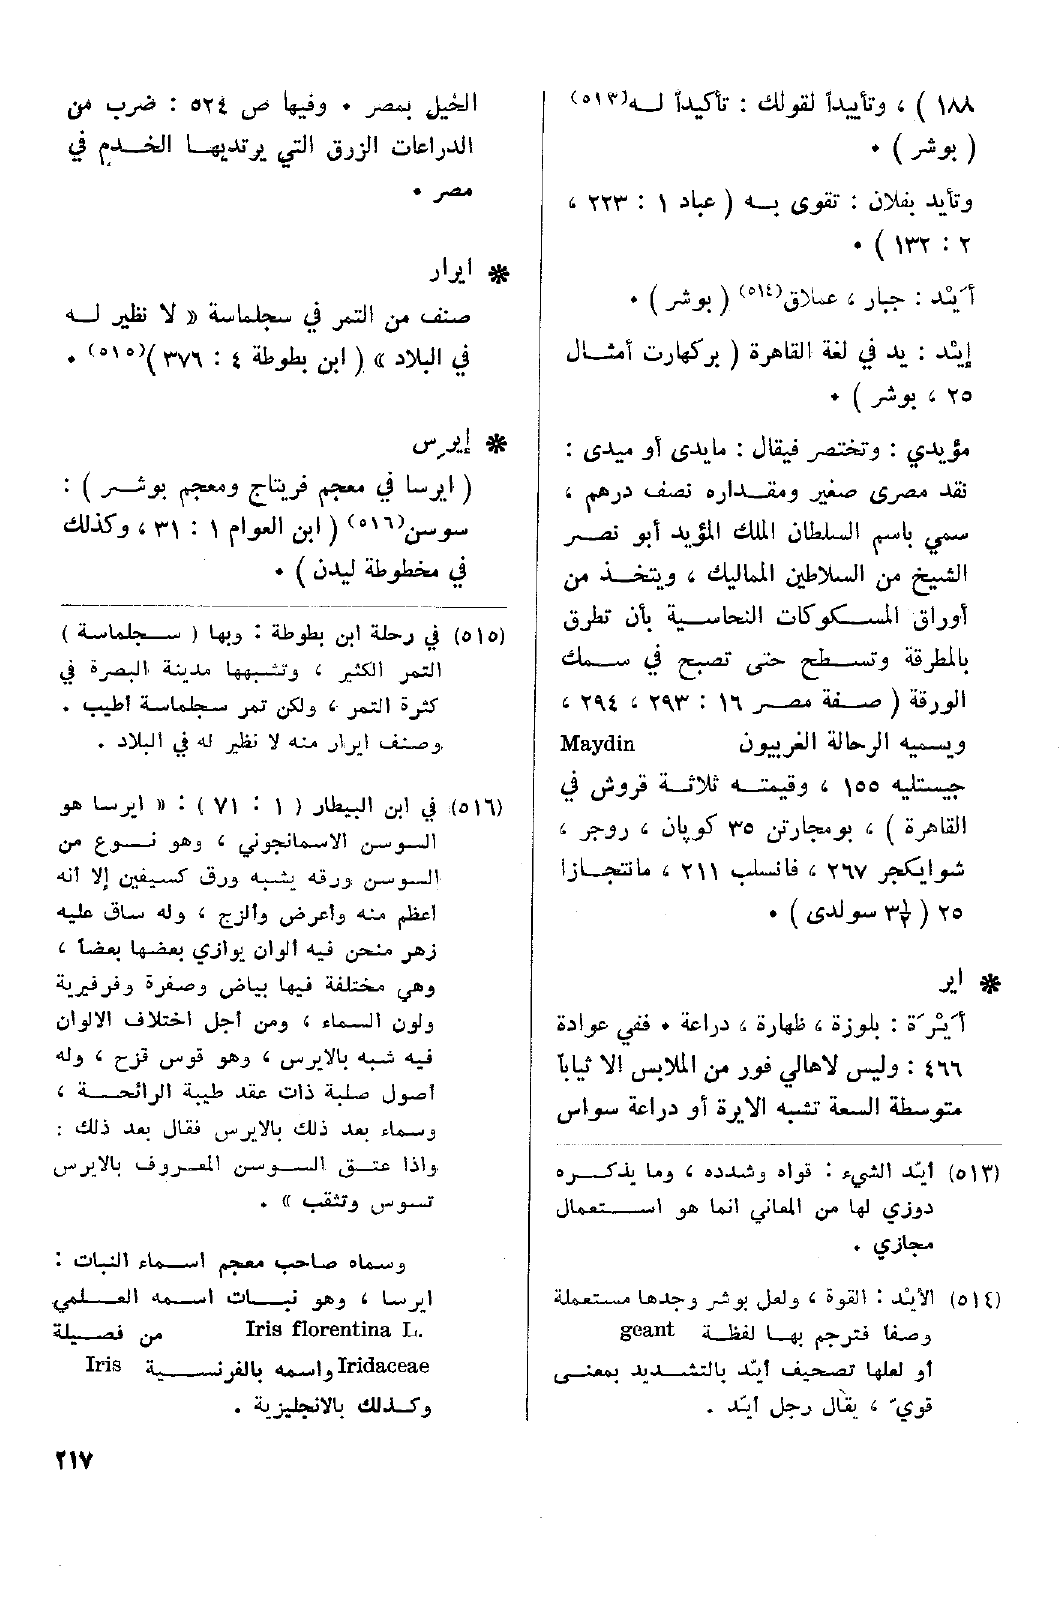 ١٨٨ ) ، وتأييداً لقولك : تأكيداً لـه(٥١٣)
( بوشر ) ٠
وتأيد بفلان : تقوى بـه ( عباد ١ : ٢٢٣ ،
٢ : ١٣٢ ) ٠
أَيْد : جبار ، عملاق(٥١٤) ( بوشر ) ٠
إيْد : يد في لغة القاهرة ( بركهارت أمثـال
٢٥ ، بوشر ) ٠
مؤيدي : وتختصر فيقال : مايدى أو ميدى :
نقد مصرى صغير ومقـداره نصف درهم ،
سمي باسم السلطان الملك المؤيد أبو نصـر
الشيخ من السلاطين المماليك ، ويتخـذ من
أوراق المسـكوكات النحاسـية بأن تطرق
بالمطرقة وتسـطح حتى تصبح في سـمك
الورقة ( صـفة مصـر ١٦ : ٢٩٣ ، ٢٩٤ ،
ويسميه الرحالة الغربيون Maydin
جيستليه ١٥٥ ، وقيمتـه ثلاثـة قروش في
القاهرة ) ، بومجارتن ٣٥ كوپان ، روجر ،
شوايكجر ٢٦٧ ، فانسلب ٢١١ ، مانتجـازا
٢٥ ( ٣½ سولدى ) ٠
* اير
أَيْرَة : بلوزة ، ظهارة ، دراعة ٠ ففي عوادة
٤٦٦ : وليس لاهالي فور من الملابس الا ثياباً
متوسطة السعة تشبه الايرة أو دراعة سواس
(٥١٣) أيّد الشيء : قواه وشدده ، وما يذكـره
دوزي لها من المعاني انما هو اسـتعمال
مجازي ٠
(٥١٤) الأيْد : القوة ، ولعل بوشر وجدها مستعملة
وصفا فترجم بهـا لفظـة geant
أو لعلها تصحيف أيّد بالتشـديد بمعنـى
قويّ ، يقال رجل أيّد .
الخيل بمصر ٠ وفيها ص ٥٢٤ : ضرب من
الدراعات الزرق التي يرتديهـا الخـدم في
مصر ٠
* ايرار
صنف من التمر في سجلماسة « لا نظير لـه
في البلاد » ( ابن بطوطة ٤ : ٣٧٦ )(٥١٥) ٠
* إيرس
( ايرسا في معجم فريتاج ومعجم بوشـر ) :
سوسن(٥١٦) ( ابن العوام ١ : ٣١ ، وكذلك
في مخطوطة ليدن ) ٠
(٥١٥) في رحلة ابن بطوطة : وبها ( سـجلماسة )
التمر الكثير ، وتشـبهها مدينة البصرة في
كثرة التمر ، ولكن تمر سـجلماسة أطيب .
وصنف ايرار منه لا نظير له في البلاد .
(٥١٦) في ابن البيطار ( ١ : ٧١ ) : « ايرسا هو
السوسن الاسمانجوني ، وهو نـوع من
السوسن ورقه يشبه ورق كسيفين إلا أنه
أعظم منه وأعرض وألزج ، وله ساق عليه
زهر منحن فيه ألوان يوازي بعضها بعضاً ،
وهي مختلفة فيها بياض وصفرة وفرفيرية
ولون السماء ، ومن أجل اختلاف الالوان
فيه شبه بالايرس ، وهو قوس قزح ، وله
أصول صلبة ذات عقد طيبة الرائحـة ،
وسماه بعد ذلك بالايرس فقال بعد ذلك :
واذا عتـق السوسن المعروف بالايرس
تسوس وتثقب » .
وسماه صاحب معجم اسـماء النبات :
ايرسا ، وهو نبـات اسـمه العـلمي
Iris florentina L. من فصـيلة
Iridaceae واسمه بالفرنسـية Iris
وكـذلك بالانجليزية .
٢١٧